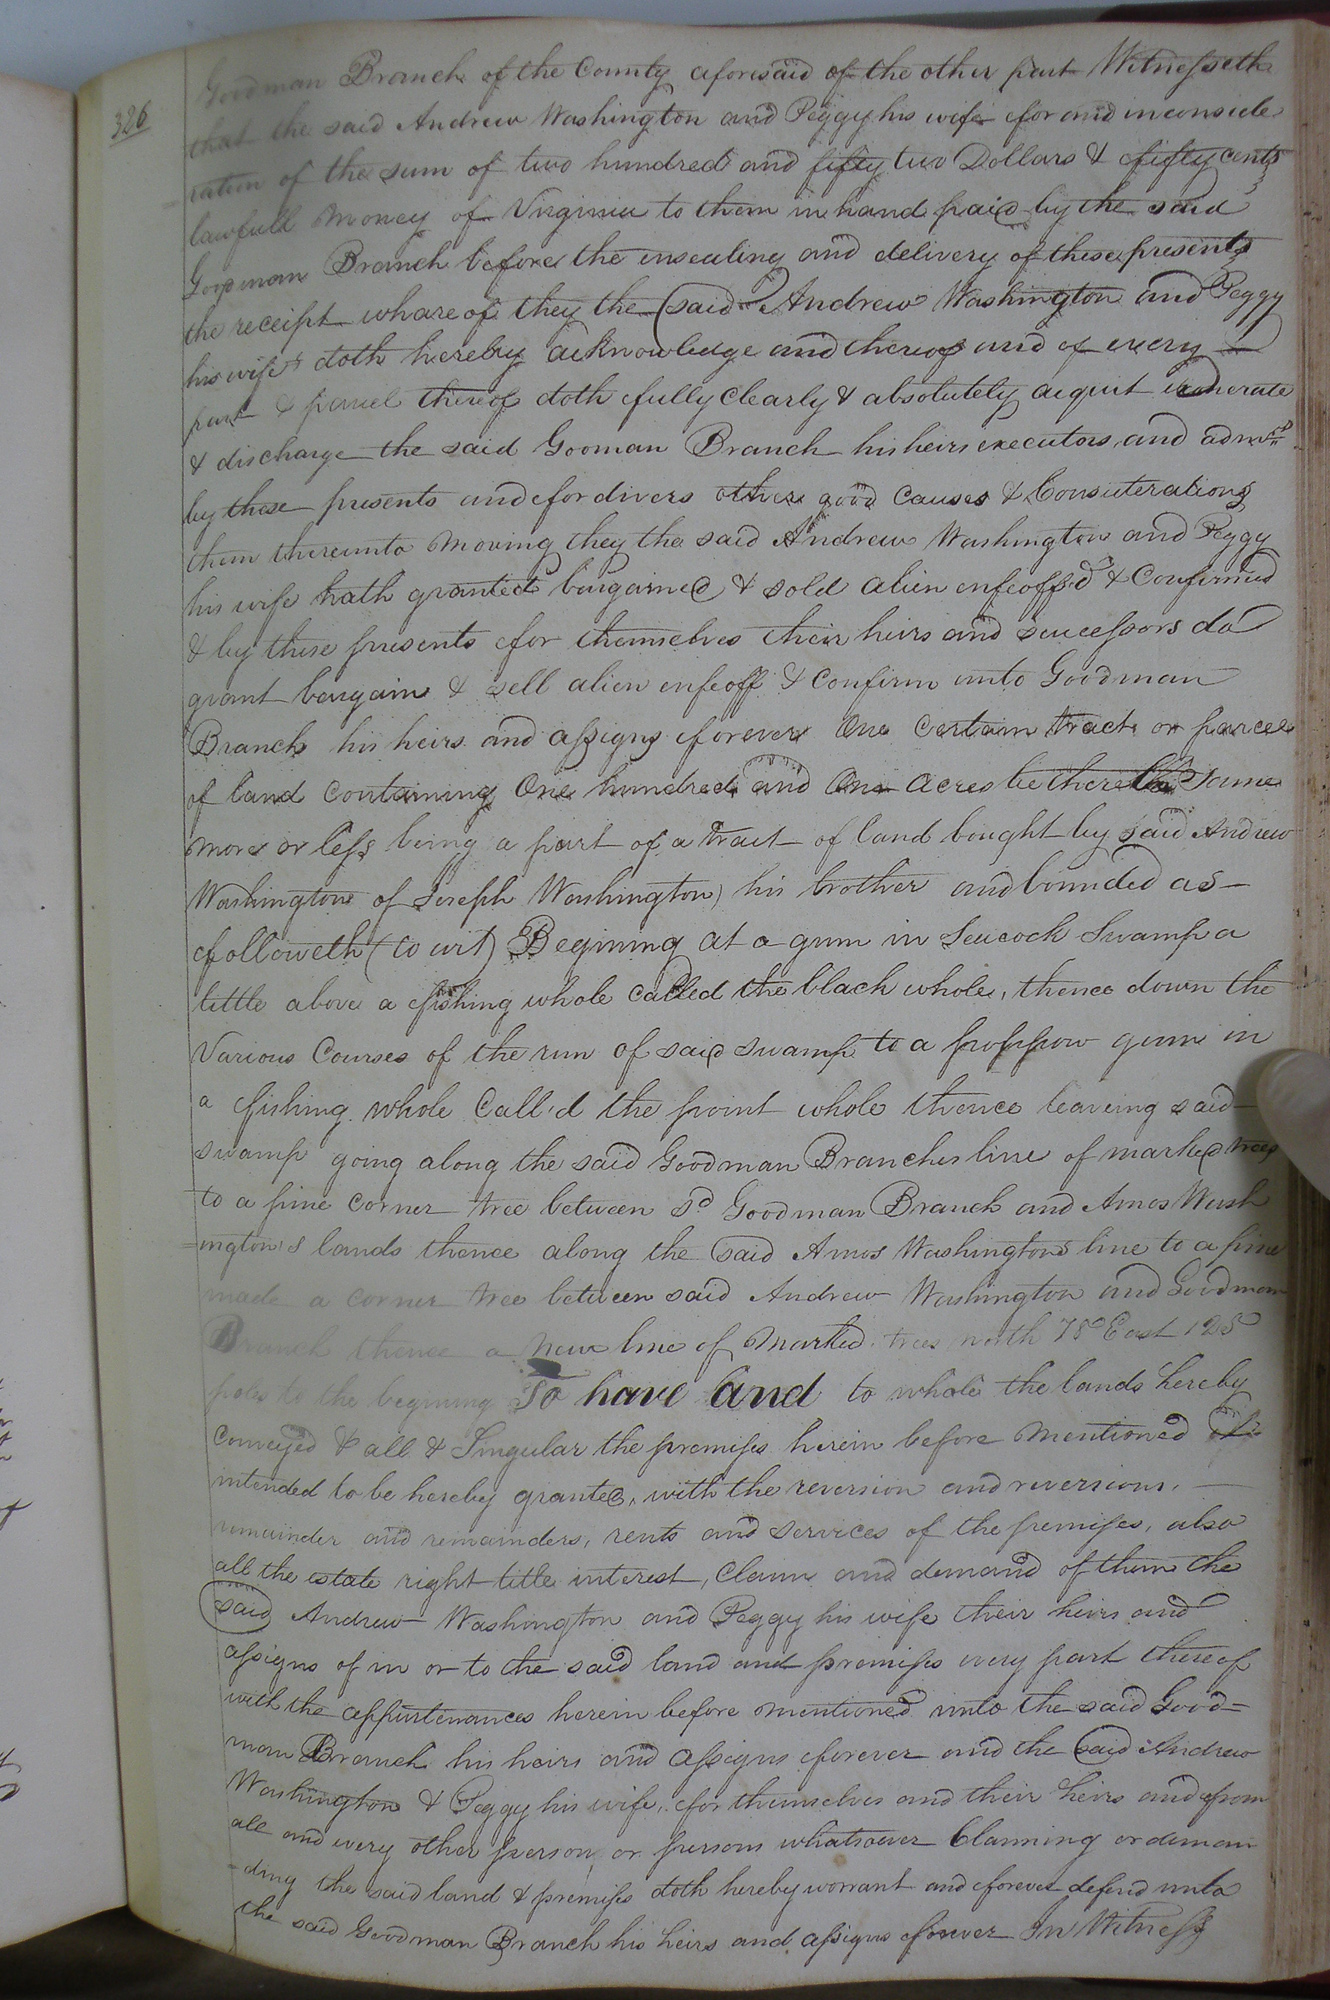 326
Goodman Branch of the County aforesaid of the other part Witnesseth
that the said Andrew Washington and Peggy his wife for and in conside
ration of the sum of two hundred and fifty two Dollars & fifty cents
lawfull money of Virginia to them in hand paid by the said
Goodman Branch before the insealing and delivery of these presents
the receipt whareof they the said Andrew Washington and Peggy
his wife doth hereby acknowledge and thereof and of every
part & parcel thereof doth fully clearly & absolutely acquit exonerate
& discharge the said Gooman Branch his heirs executors and admrs
by these presents and for divers other good causes & Considerations
them thereunto moving they the said Andrew Washington and Peggy
his wife hath granted bargained & sold alien enfeoff'd & Confirmed
& by these presents for themselves their heirs and successors do
grant bargain & sell alien enfeoff & Confirm unto Goodman
Branch his heirs and assigns forever One Certain tract or parcel
of land containing One hundred and One acres be there the same
more or less being a part of a tract of land bought by said Andrew
Washington of Joseph Washington his brother and bounded as
followeth (to wit) Begining at a gum in Seacock Swamp a
little above a fishing whole called the black whole, thence down the
Various Courses of the run of said swamp to a gum in
a fishing whole Call'd the point whole thence leaveing said
swamp going along the said Goodman Branches line of marked trees
to a pine corner tree between sd Goodman Branch and Amos Wash
ington's lands thence along the said Amos Washingtons line to a pine
made a corner tree between said Andrew Washington and Goodman
Branch thence a new line of marked trees north 78° East 125
poles to the begining To have and to whole the lands hereby
conveyed & all & Singular the premises herein before mentioned &
intended to be hereby granted, with the reversion and reversions,
remainder and remainders, rents and services of the premises, also
all the estate right title interest, Claim and demand of them the
said Andrew Washington and Peggy his wife their heirs and
assigns of in or to the said land and premises every part thereof
with the appurtenances herein before mentioned unto the said Good=
man Branch his heirs and assigns forever and the said Andrew
Washington & Peggy his wife, for themselves and their heirs and from
all and every other person or persons whatsoever Claiming or deman
ding the said land & premises doth hereby warrant and forever defend unto
the said Goodman Branch his heirs and assigns forever In Witness